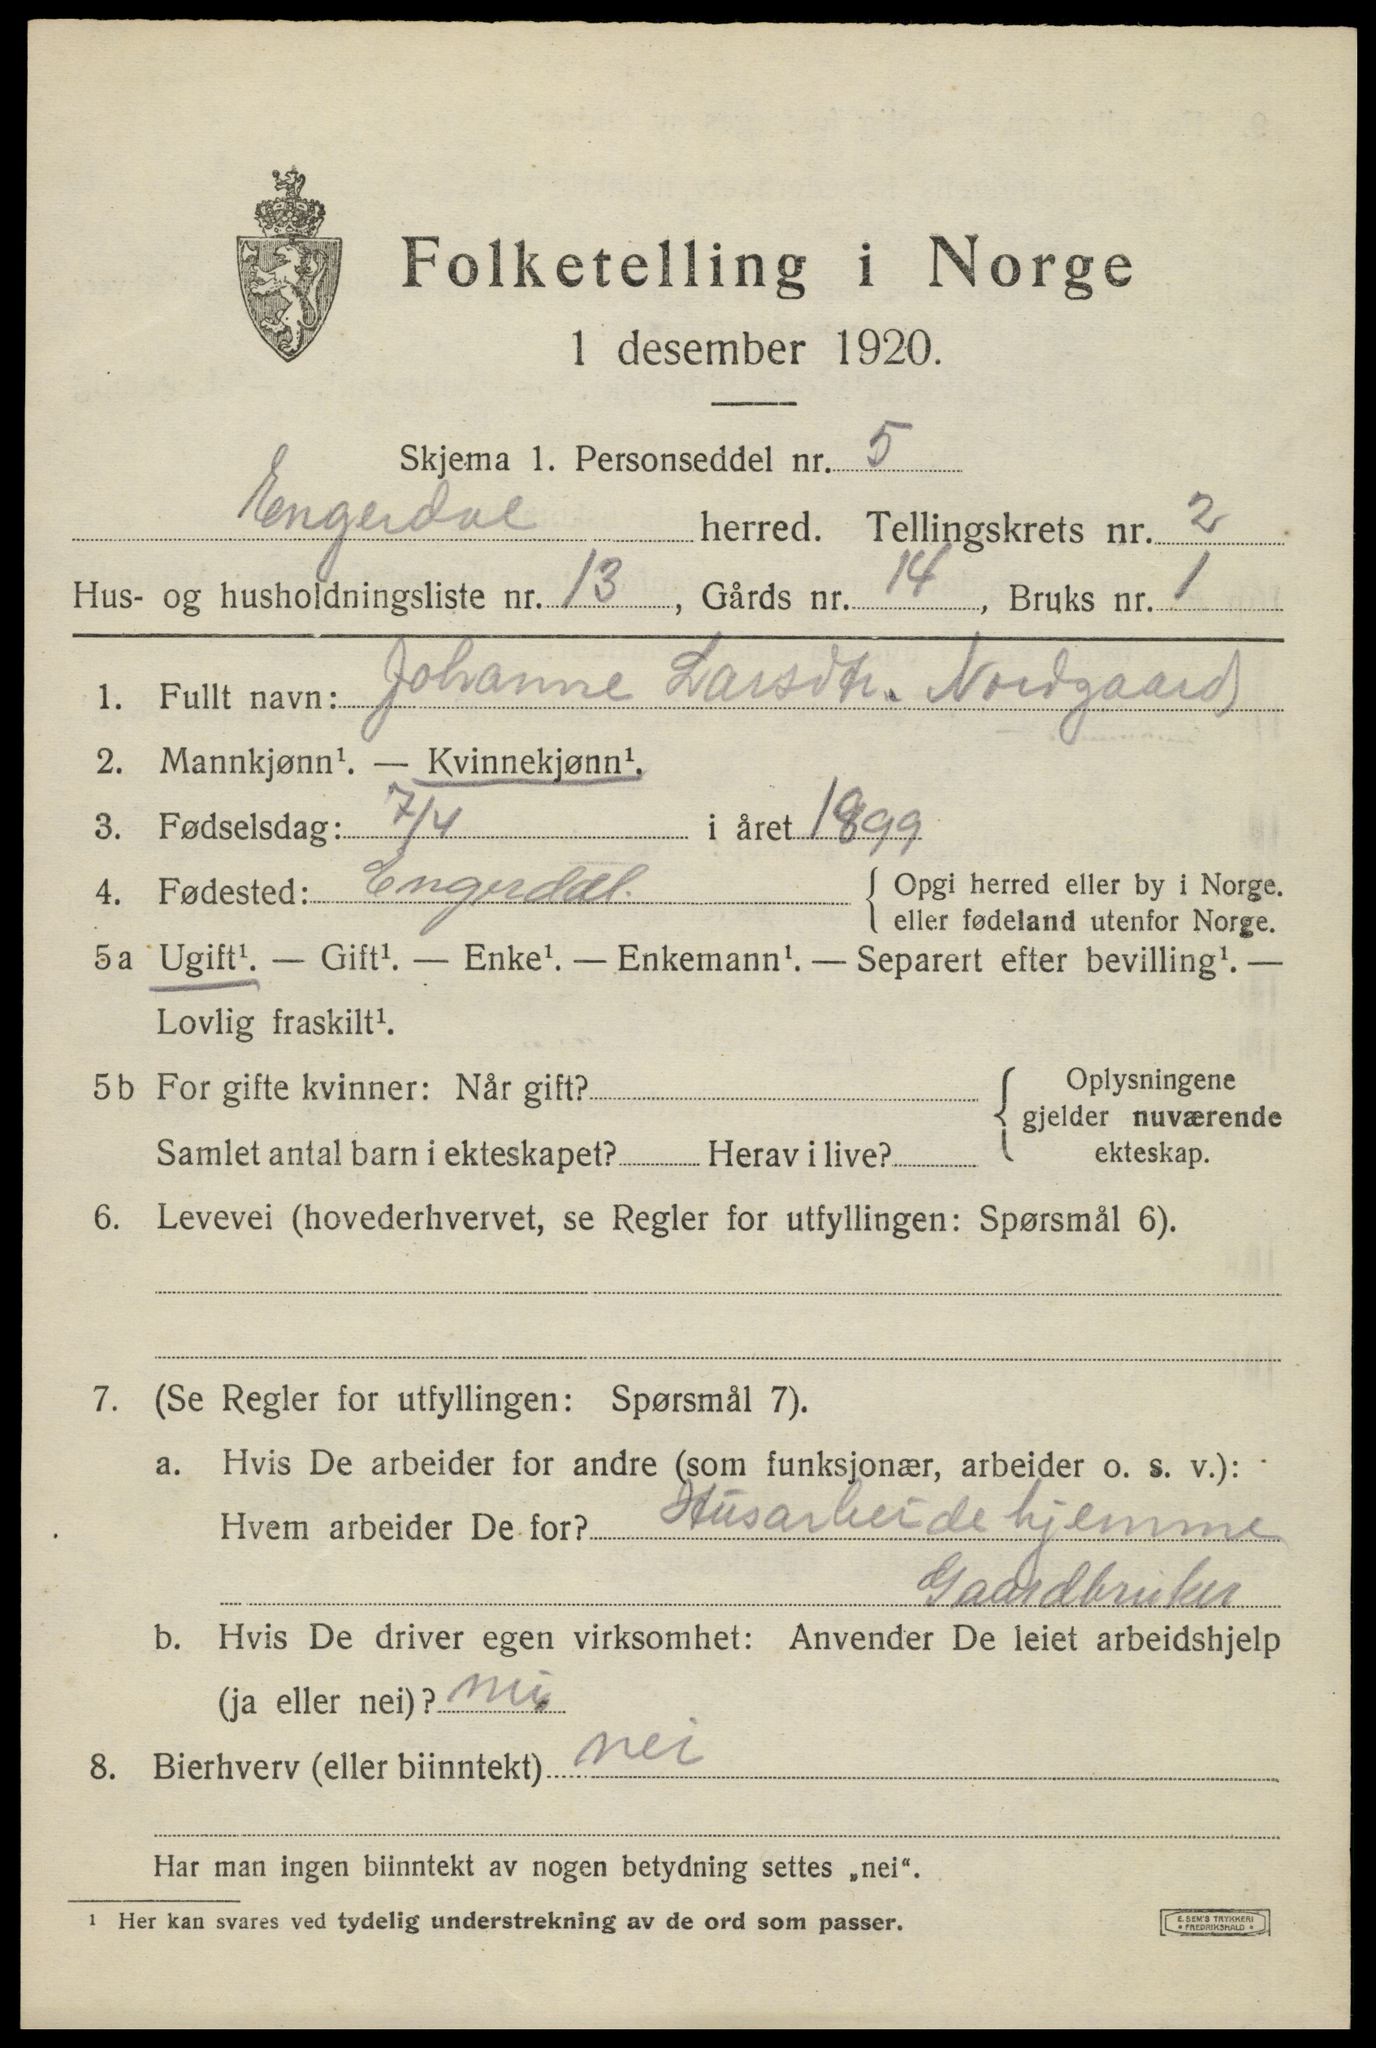 Folketelling i Norge
1 desember 1920.
Skjema 1. Personseddel nr. 5
Engerdal herred. Tellingskrets nr. 2
Hus- og husholdningsliste nr. 13, Gårds nr. 14, Bruks nr. 1
1. Fullt navn: Johanne Larsdtr. Nordgaard
2. Mannkjønn¹. — Kvinnekjønn¹.
3. Fødselsdag: 7/4 i året 1899
4. Fødested: Engerdal. { Opgi herred eller by i Norge.
eller fødeland utenfor Norge.
5a Ugift¹. — Gift¹. — Enke¹. — Enkemann¹. — Separert efter bevilling¹. —
Lovlig fraskilt¹.
5b For gifte kvinner: Når gift? { Oplysningene
gjelder nuværende
Samlet antal barn i ekteskapet? Herav i live? ekteskap.
6. Levevei (hovederhvervet, se Regler for utfyllingen: Spørsmål 6).
7. (Se Regler for utfyllingen: Spørsmål 7).
a. Hvis De arbeider for andre (som funksjonær, arbeider o. s. v.):
Hvem arbeider De for? Husarbeide hjemme
Gaardbruker
b. Hvis De driver egen virksomhet: Anvender De leiet arbeidshjelp
(ja eller nei)? nei
8. Bierhverv (eller biinntekt) nei
Har man ingen biinntekt av nogen betydning settes „nei“.
¹ Her kan svares ved tydelig understrekning av de ord som passer.
E. SEM'S TRYKKERI
FREDRIKSHALD